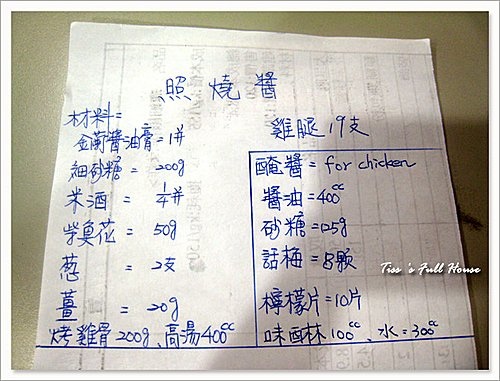 照燒醬
材料=
金蘭醬油膏=1并
細砂糖 = 200g
米酒 = 1/4并
柴魚花 = 50g
蔥 = 2支
薑 = 20g
烤雞骨200g、高湯400cc
雞腿19支
醃醬= for chicken
醬油=400cc
砂糖=
話梅=8顆
檸檬片=10片
味醂林100cc、水=300cc
Tiss's Full House